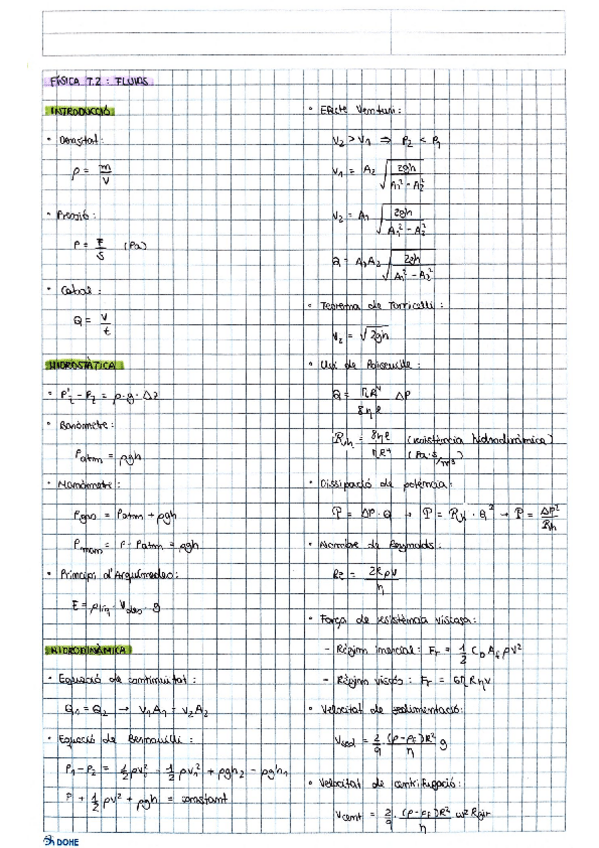 FÍSICA T.2 : FLUIDS
INTRODUCCIÓ
• Densitat :
ρ = m/V
• Pressió :
P = F/S (Pa)
• Cabal :
Q = V/t
HIDROSTÀTICA
• Baròmetre :
Patm = ρgh
• Manòmetre :
Pgas = Patm + ρgh
Pmam = P - Patm = ρgh
• Principi d'Arquímedes :
E = ρliq · Vdes · g
HIDRODINÀMICA
• Equació de continuïtat :
Q1 = Q2 → v1A1 = v2A2
• Equació de Bernouilli :
P1 - P2 = 1/2 ρv2² - 1/2 ρv1² + ρgh2 - ρgh1
P + 1/2 ρv² + ρgh = constant
• Efecte Venturi :
v2 > v1 ⇒ P2 < P1
v1 = A2 √(2gh/(A1² - A2²))
v2 = A1 √(2gh/(A1² - A2²))
Q = A1A2 √(2gh/(A1² - A2²))
• Teorema de Torricelli :
v2 = √2gh
• Llei de Poiseuille :
Q = πR⁴/8ηl ΔP
Rh = 8ηl/πR⁴ (resistència hidrodinàmica)
(Pa·s/m³)
• Dissipació de potència :
P = ΔP · Q → P = Rh · Q² → P = ΔP²/Rh
• Nombre de Reynolds :
Re = 2Rρv/η
• Força de resistència viscosa :
- Règim inercial : Fr = 1/2 CD Af ρv²
- Règim viscós : Fr = 6πRηv
• Velocitat de sedimentació :
vsed = 2/9 (ρ-ρf)R²/η g
• Velocitat de centrifugació :
vcent = 2/9 · (ρ-ρf)R²/η ω² Rgir
DOHE